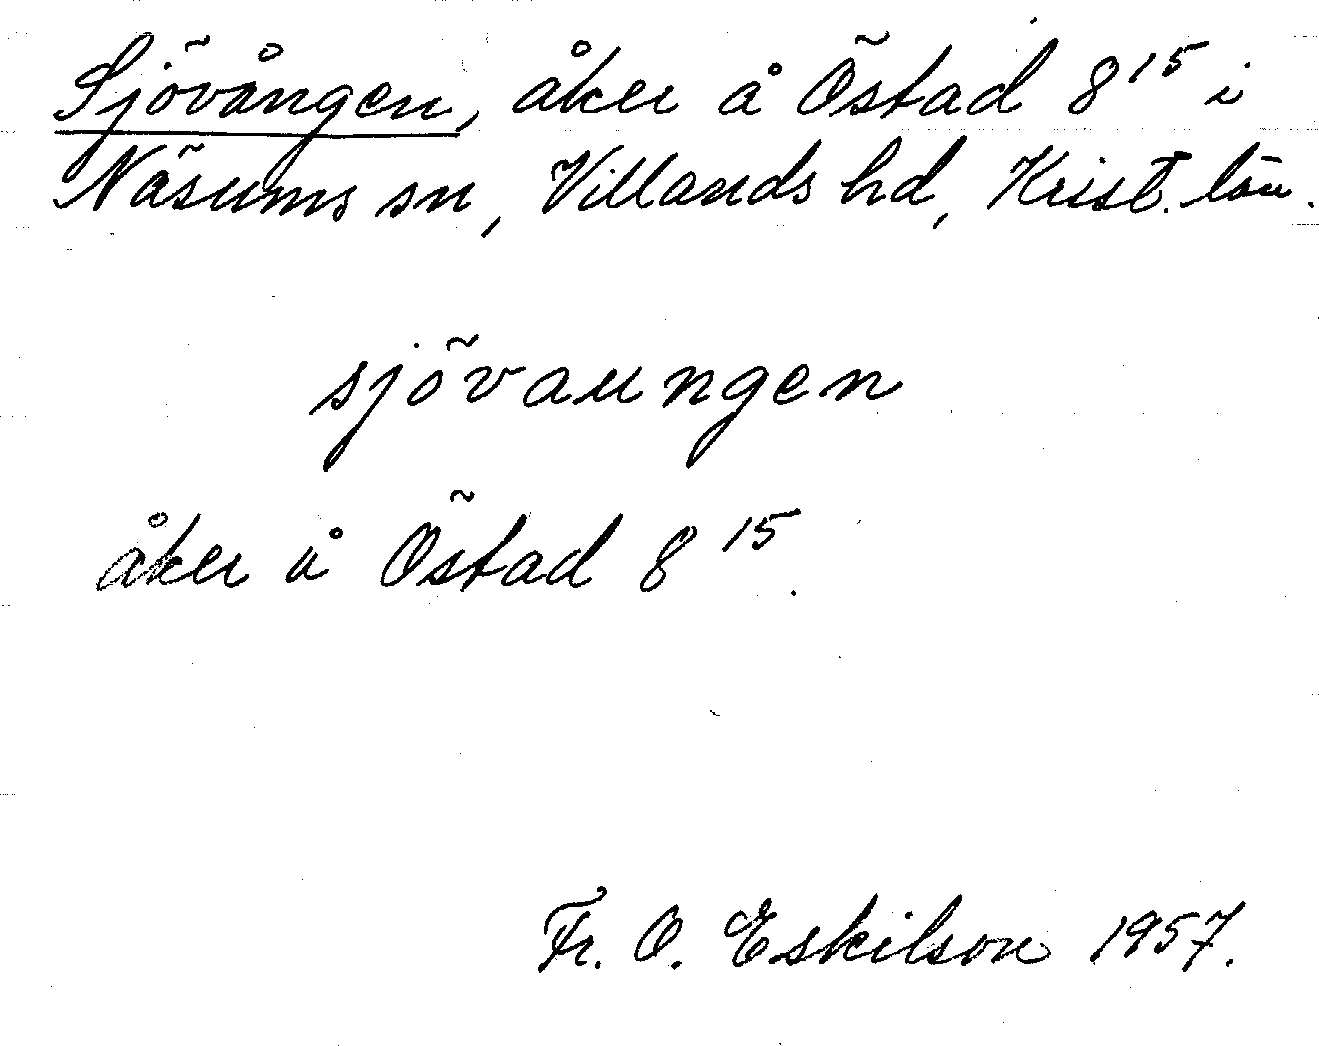 Sjövången, åker å Östad 8¹⁵ i
Näsums sn, Villands hd, Krist. län.
sjövaungen
åker å Östad 8¹⁵.
Fr. O. Eskilson 1957.